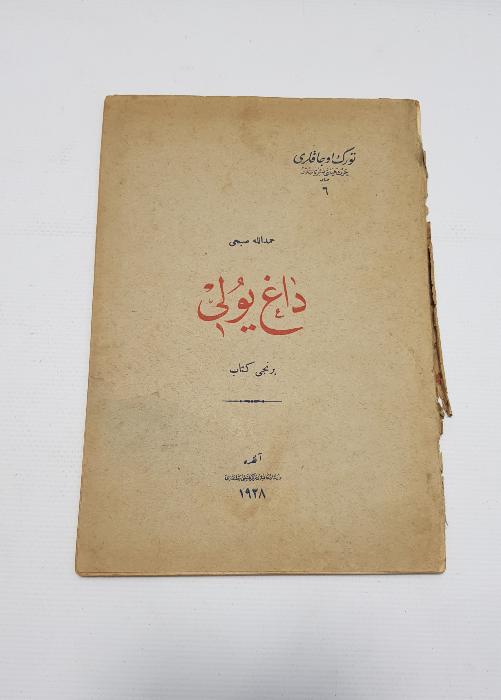 تورك اوجاقلری
٦
حمدالله صبحی
داغ یولی
برنجی كتاب
آنقره
١٩٢٨